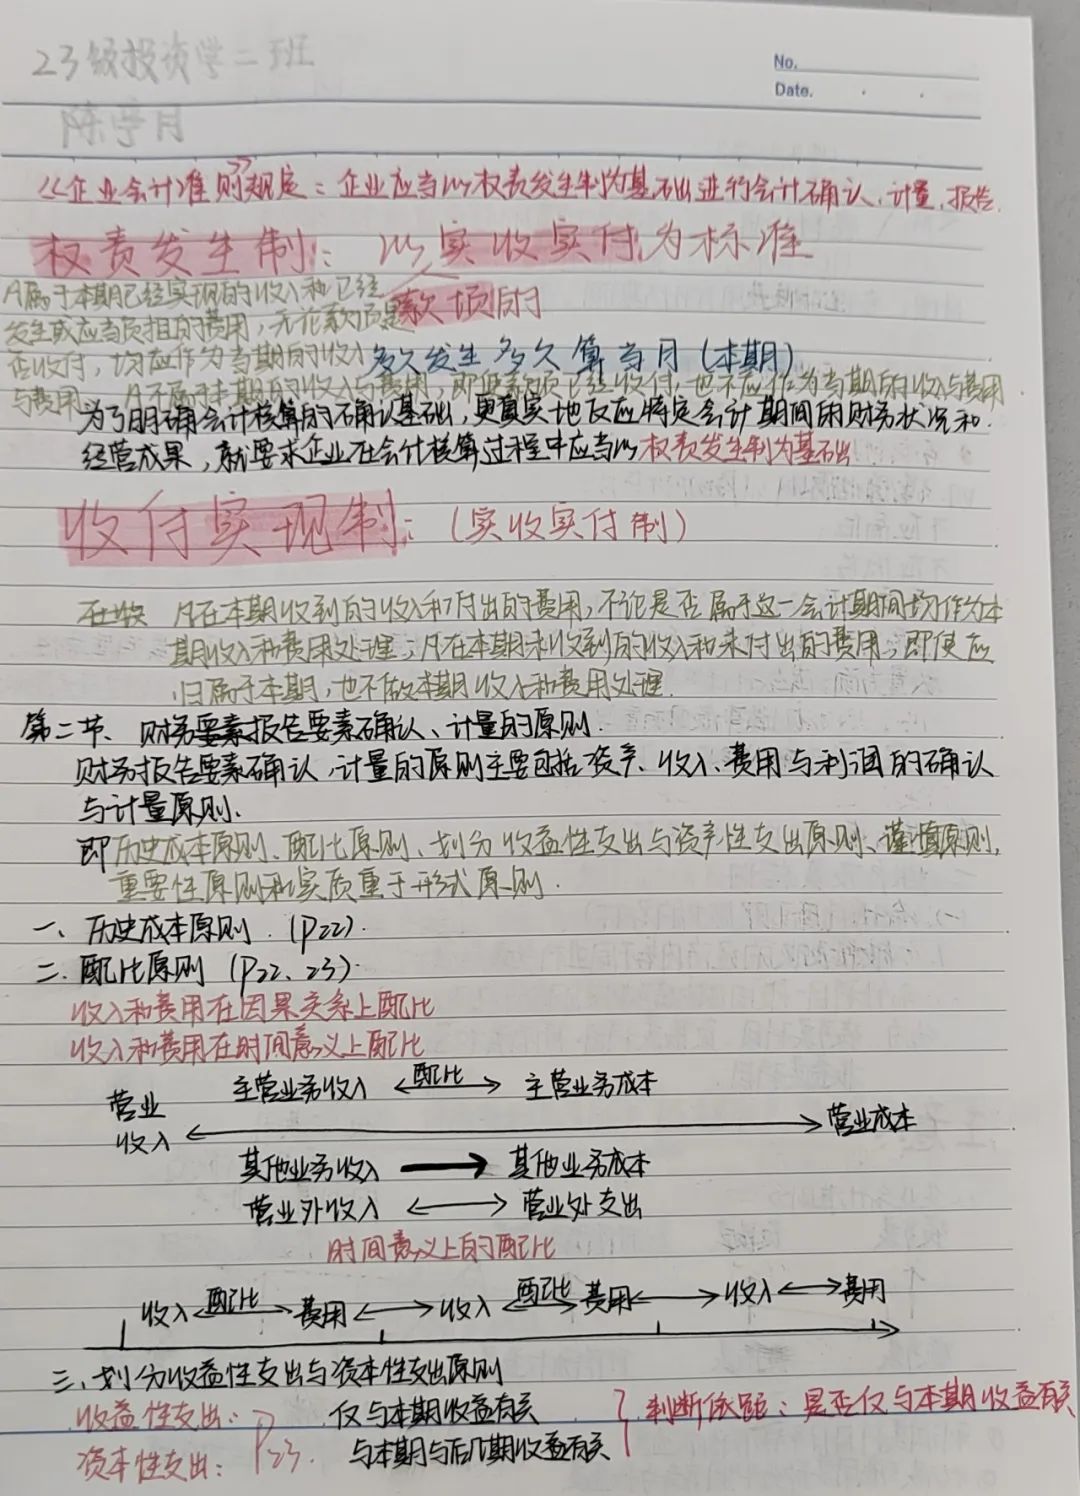 23级投资学二班
No.
Date.
陈学月
《企业会计准则》规定：企业应当以权责发生制为基础进行会计确认、计量、报告.
权责发生制：以实收实付为标准
款项的
凡属于本期已经实现的收入和已经
发生或应当负担的费用，无论款项是
否收付，均应作为当期的收入
多久发生多久算当月（本期）
与费用 凡不属于本期的收入与费用，即便款项已经收付，也不应作为当期的收入与费用
为了明确会计核算的确认基础，更真实地反应特定会计期间的财务状况和
经营成果，就要求企业在会计核算过程中应当以权责发生制为基础
收付实现制：（实收实付制）
凡在本期收到的收入和付出的费用，不论是否属于这一会计期间均作为本
期收入和费用处理；凡在本期未收到的收入和未付出的费用；即使应
归属于本期，也不做本期收入和费用处理.
第二节、财务要素报告要素确认、计量的原则.
财务报告要素确认，计量的原则主要包括资产、收入、费用与利润的确认
与计量原则.
即历史成本原则、配比原则、划分收益性支出与资产性支出原则、谨慎原则，
重要性原则和实质重于形式原则.
一、历史成本原则.（P22）.
二.配比原则（P22、23）.
收入和费用在因果关系上配比
收入和费用在时间意义上配比
主营业务收入 配比 主营业务成本
营业
收入 营业成本
其他业务收入 其他业务成本
营业外收入 营业外支出
时间意义上的配比
收入 配比 费用 收入 配比 费用 收入 费用
三、划分收益性支出与资本性支出原则
收益性支出： 仅与本期收益有关
资本性支出： P23. 与本期与后几期收益有关
判断依据：是否仅与本期收益有关